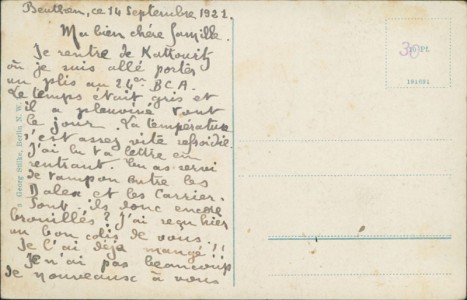 Beuthen, ce 14 Septembre 1921.
Ma bien chère famille.
Je rentre de Kattowitz
où je suis allé porter
un plis au 24e B C A.
Le temps était gris et
il a pleuviné tout
le jour. La température
s'est assez vite refroidie.
J'ai lu ta lettre en
rentrant. Tu as servi
de tampon entre les
Dalex et les Carrier.
Sont-ils donc encore
brouillés? J'ai reçu hier
un bon colis de vous.
Je l'ai déjà mangé!!
Je n'ai pas beaucoup
de nouveaux à vous
Georg Stilke, Berlin N. W.
30